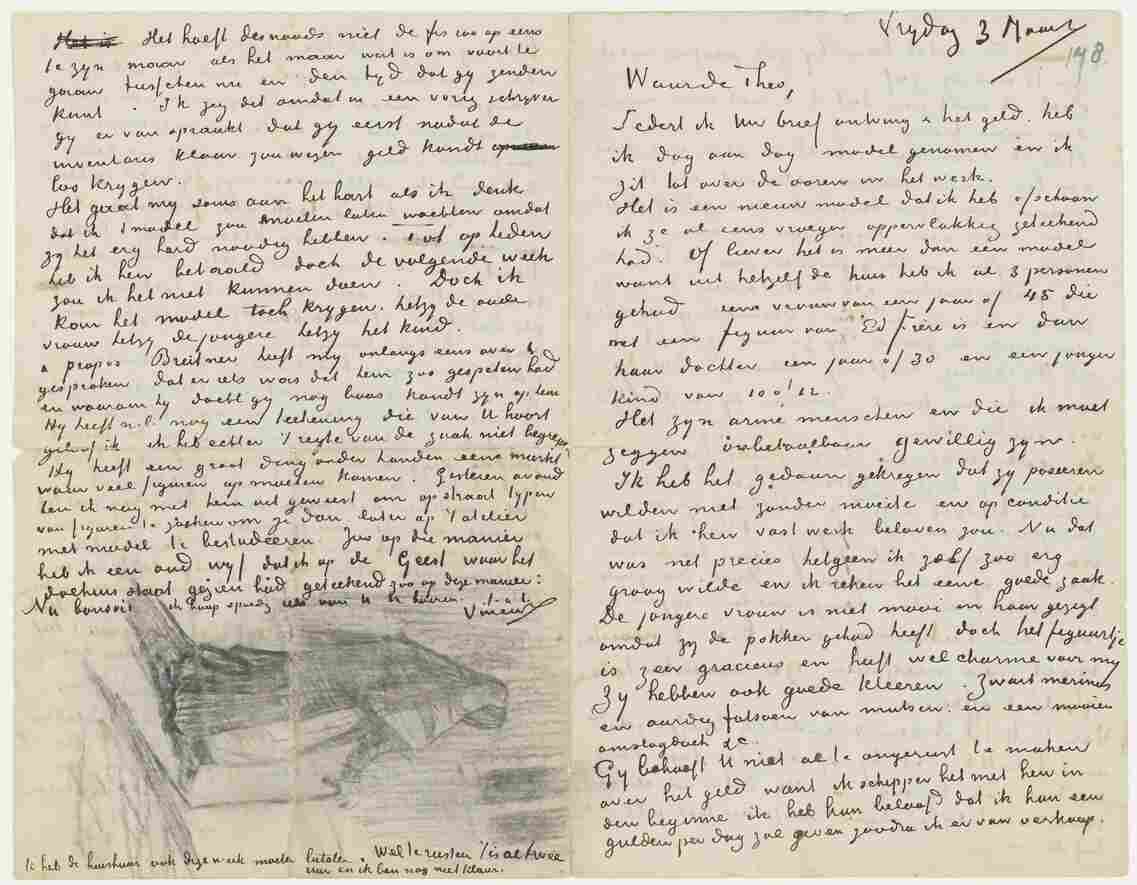 Vrydag 3 Maart
148
Waarde Theo,
Sedert ik Uw brief ontving & het geld, heb
ik dag aan dag model genomen en ik
zit tot over de ooren in het werk.
Het is een nieuw model dat ik heb ofschoon
ik ze al eens vroeger oppervlakkig geteekend
had. Of liever het is meer dan een model
want uit hetzelfde huis heb ik al 3 personen
gehad een vrouw van een jaar of 45 die
net een figuur van Ed Frère is en dan
haar dochter een jaar of 30 en een jonger
kind van 10 of 12.
Het zyn arme menschen en die ik moet
zeggen onbetaalbaar gewillig zyn.
Ik heb het gedaan gekregen dat zy poseeren
wilden niet zonder moeite en op conditie
dat ik hen vast werk beloven zou. Nu dat
was net precies hetgeen ik zelf zoo erg
graag wilde en ik reken het eene goede zaak.
De jongere vrouw is niet mooi in haar gezigt
omdat zy de pokken gehad heeft doch het figuurtje
is zeer gracieus en heeft wel charme voor my
Zy hebben ook goede kleeren. Zwart merinos
en aardig fatsoen van mutsen en een mooien
omslagdoek &c.
Gy behoeft U niet al te ongerust te maken
over het geld want ik schipper het met hen in
den beginne ik heb hun beloofd dat ik hun een
gulden per dag zal geven zoodra ik er van verkoop.
Het hoeft desnoods niet de frs 100 op eens
te zyn maar als het maar wat is om voort te
gaan tusschen nu en den tyd dat gy zenden
kunt. Ik zeg dit omdat in een vorig schryven
gy er van spraakt dat gy eerst nadat de
inventaris klaar zou wezen geld kondt
los krygen.
Het gaat my soms aan het hart als ik denk
dat ik 1 model zou moeten laten wachten omdat
zy het erg hard noodig hebben. Tot op heden
heb ik hen betaald doch de volgende week
zou ik het niet kunnen doen. Doch ik
kan het model toch krygen, hetzy de oude
vrouw hetzy de jongere hetzy het kind.
a propos Breitner heeft my onlangs eens over U
gesproken dat er iets was dat hem zoo gespeten had
en waarom hy dacht gy nog boos kondt zyn op hem
Hy heeft n.l. nog een teekening die van U hoort
geloof ik ik heb echter 't regte van de zaak niet begrepen
Hy heeft een groot ding onder handen eene markt
waar veel figuren op moeten komen. Gisteren avond
ben ik nog met hem uit geweest om op straat typen
van figuren te zoeken om ze dan later op 't atelier
met model te bestudeeren. Zoo op die manier
heb ik een oud wyf dat ik op de Geest waar het
dolhuis staat gezien had geteekend zoo op deze manier:
Nu bonsoir ik hoop spoedig iets van U te hooren. t. à t.
Vincent
Ik heb de huishuur ook deze week moeten betalen. Wel te rusten 't is al twee
uur en ik ben nog niet klaar.